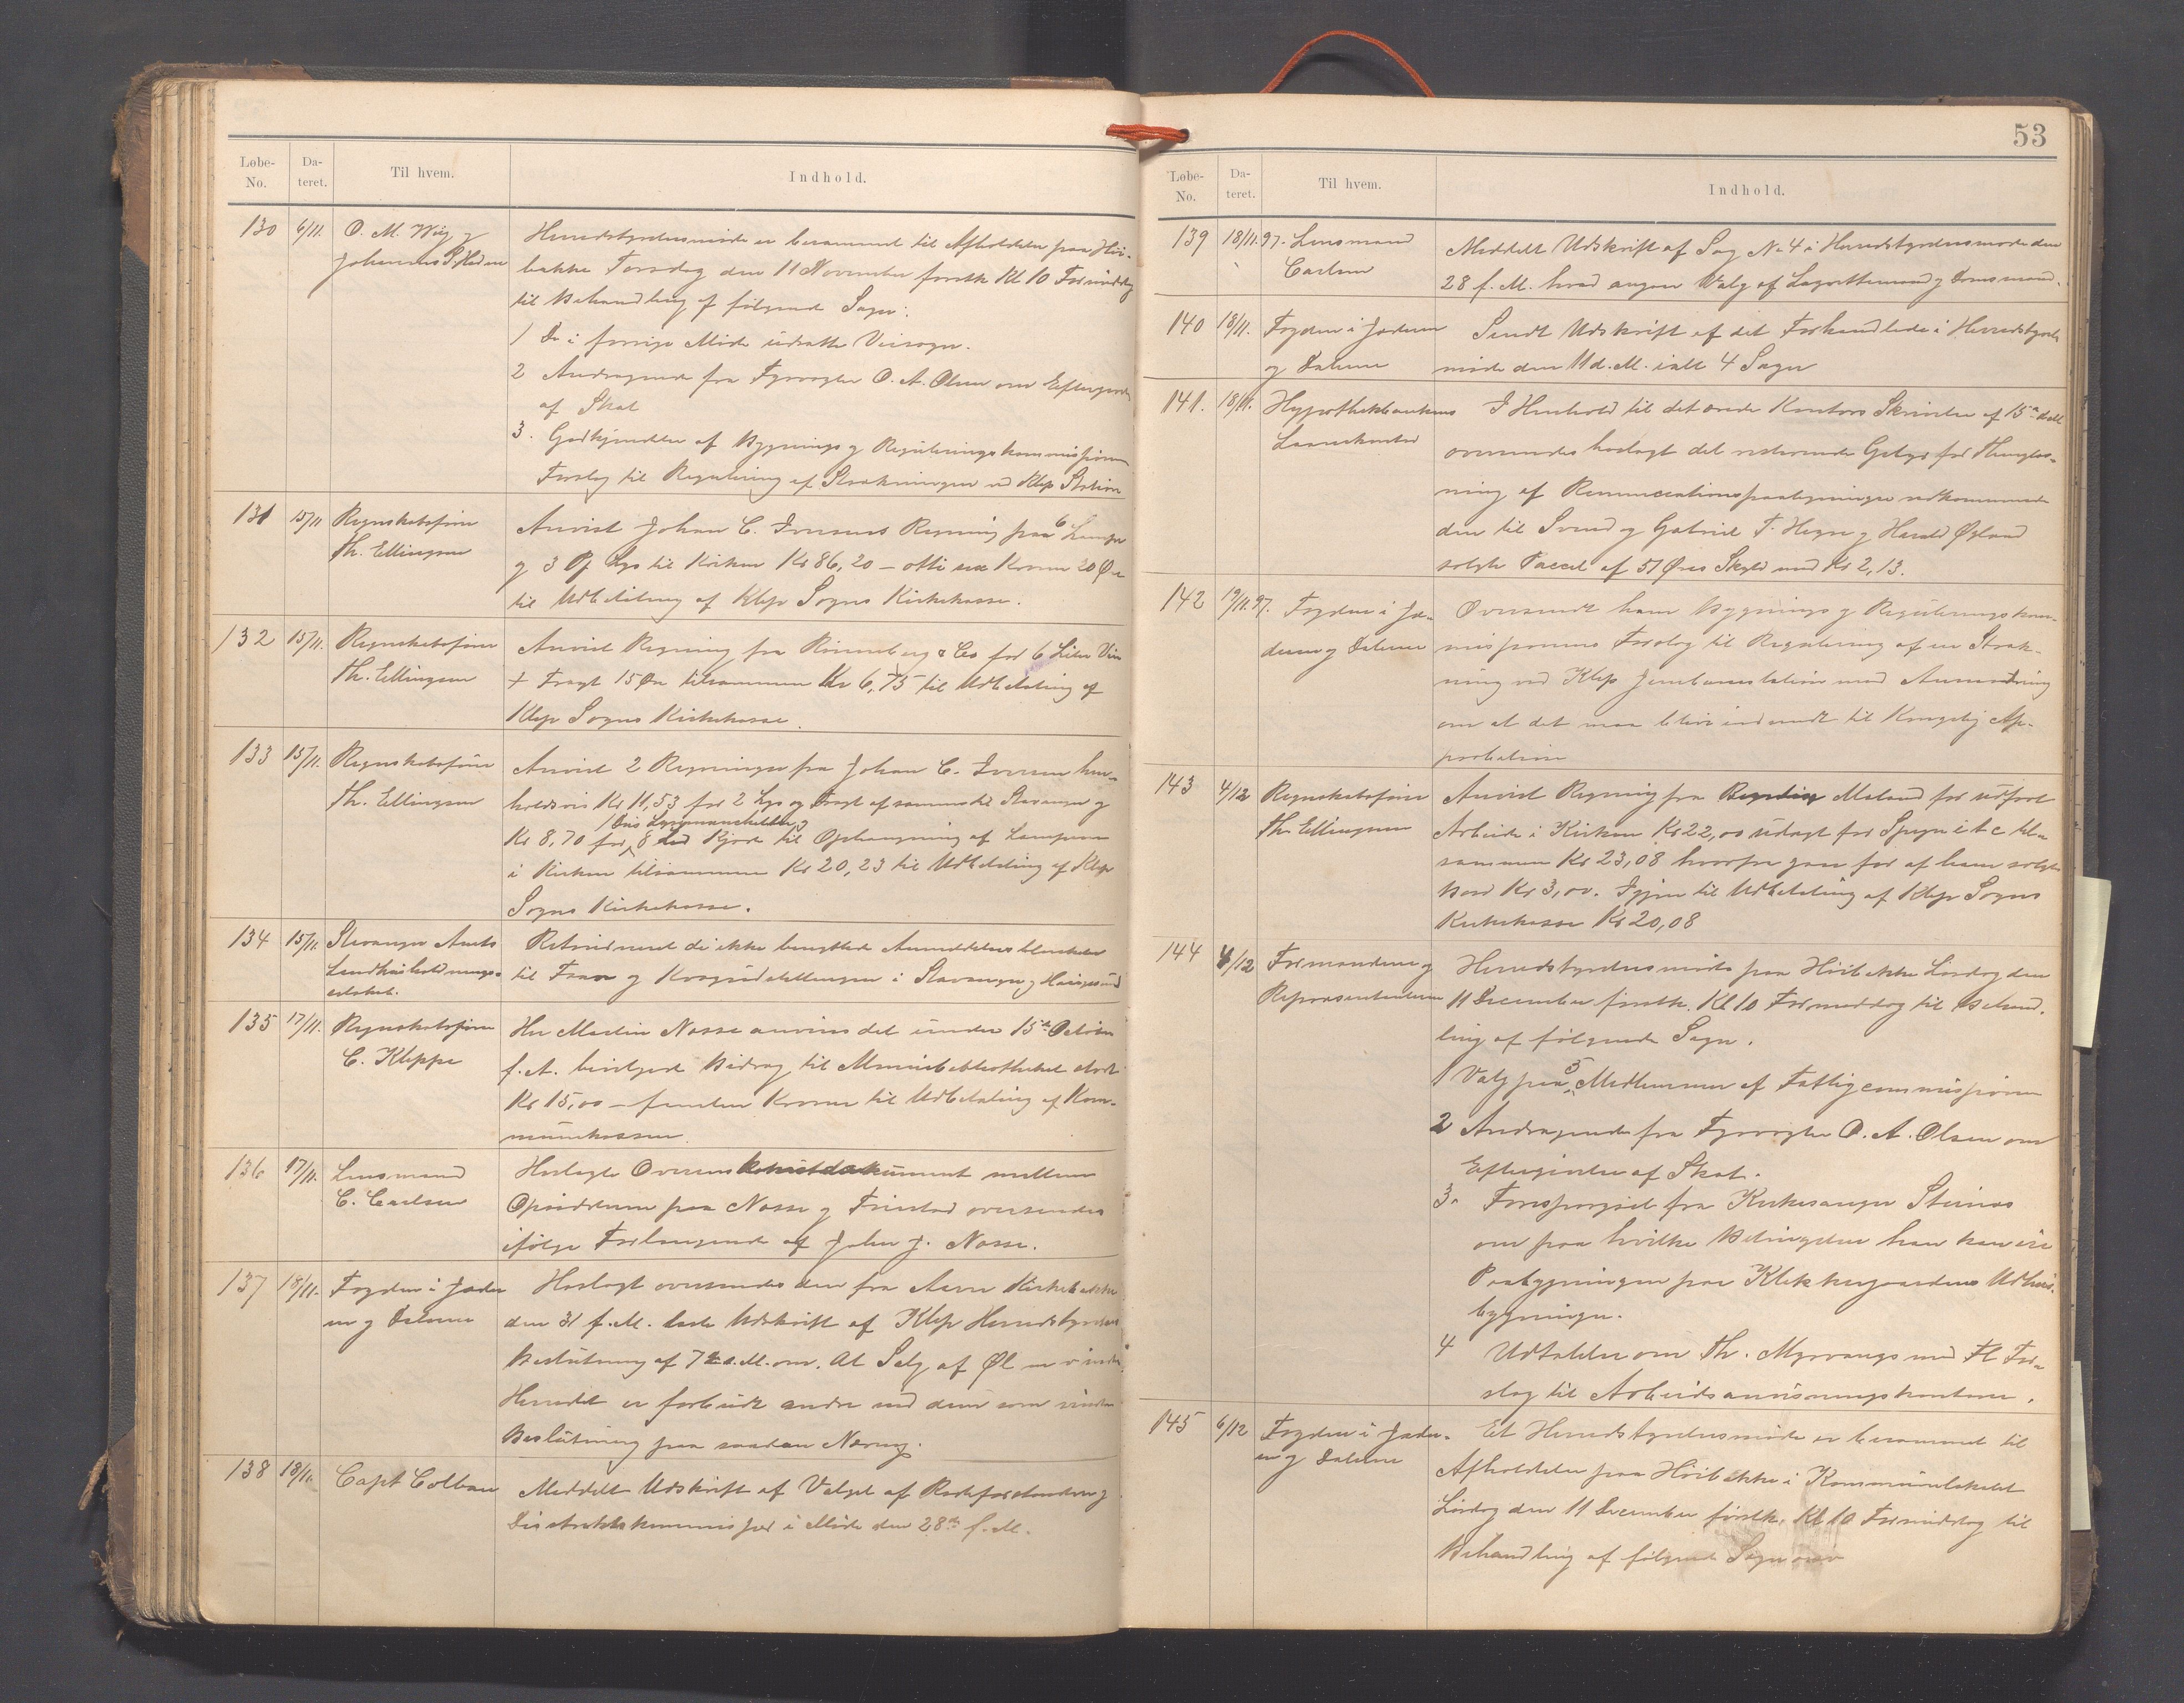 Løbe-
No.
Da-
teret.
Til hvem.
Indhold.
130 6/11. O. M. Wiig og
Johannes P. Hodne
Herredstyrelsesmøde er berammet til Afholdelse paa Høi-
bakke Torsdag den 11 November førstk Kl 10 Formiddag
til Behandling af følgende Sager:
1 De i forrige Møde udsatte Veisager.
2 Andragende fra Fyrvogter O. A. Olsen om Eftergivelse
af Skat
3. Godkjendelse af Bygnings og Reguleringskommissionens
Forslag til Regulering af Strækningen ved Klep Station
131 15/11 Regnskabsfører
Th. Ellingsen
Anvist Johan C. Iversens Regning paa 6 Lamper
og 3 Lys til Kirken Kr 86,20 – otti sex Kroner 20 Øre
til Udbetaling af Klep Sogns Kirkekasse.
132 15/11. Regnskabsfører
Th. Ellingsen
Anvist Regning fra Rönneberg & Co for 6 Liter Vin
+ Fragt 15 Øre tilsammen Kr 6,75 til Udbetaling af
Klep Sogns Kirkekasse.
133 15/11. Regnskabsfører
Th. Ellingsen
Anvist 2 Regninger fra Johan C. Iversen hen-
holdsvis Kr 11,53 for 2 Lys og Fragt af samme til Stavanger og
Kr 8,70 for 8 Kjæde til Ophængning af Lamperne
i Kirken tilsammen Kr 20,23 til Udbetaling af Klep
Sogns Kirkekasse.
134 15/11. Stavanger Amts
Landhusholdnings-
selskab.
Returneret de ikke benyttede Anmeldelsesblanketter
til Frem og Kvægudstillingen i Stavanger og Haugesund
135 17/11. Regnskabsfører
C. Kleppe
Hr Martin Nasse anvises det under 15de October
f. A. bevilgede Bidrag til Almuebibliotheket stort
Kr 15,00 – femten Kroner til Udbetaling af Kom-
munekassen.
136 17/11. Lensmand
C. Carlsen
Hoslagte Overenskomstdokument mellem
Opsidderne paa Nasse og Friestad oversendes
ifølge Forlangende af John J. Nasse.
137 18/11. Fogden i Jæder
en og Dalerne
Hoslagt oversendes den fra Aarre Kirkebakke
den 31 f. M. læste Udskrift af Klep Herredstyrelses
Beslutning af 7 s.M. om. At Salg af Øl m v inden
Herredet er forbudt andre end dem som
Beslutning paa saadan Næring.
138 18/11. Capt Colban
Meddelt Udskrift af Valget af Rodeforstandere og
Distriktskommissær i Møde den 28de f. M.
53
Løbe-
No.
Da-
teret.
Til hvem.
Indhold.
139 18/11.97. Lensmand
Carlsen
Meddelt Udskrift af Sag No 4 i Herredstyrelsesmøde den
28 f. M. hvad angaar Valg af Lagrettemænd og Domsmænd.
140 18/11. Fogden i Jæderen
og Dalerne
Sendt Udskrift af det Forhandlede i Herredstyrelses
møde den 11 d. M. ialt 4 Sager
141. 18/11. Hypothekbankens
Laanekontor
I Henhold til det ærede Kontors Skrivelse af 15de
oversendes hoslagt det resterende Gebyr for Thinglæs-
ning af Renunciationspaategninger vedkommende
den til Svend og Gabriel T. Hegre og Harald Øgland
solgte Parcel af 51 Øres Skyld med Kr 2,13.
142 19/11.97. Fogden i Jæ-
deren og Dalerne
Oversendt ham Bygnings og Reguleringskom-
missionens Forslag til Regulering af en Stræk-
ning ved Klep Jernbanestation med Anmodning
om at det maa blive indsendt til Kongelig Ap-
probation
143 4/12 Regnskabsfører
Th. Ellingsen
Anvist Regning fra Meland for udført
Arbeide i Kirken Kr 22,00 udlagt for etc til-
sammen Kr 23,08 hvorfra gaar for af ham solgte
Bord Kr 3,00. Igjen til Udbetaling af Klep Sogns
Kirkekasse Kr 20,08
144 4/12 Formændene og
Repræsentanterne
Herredstyrelsesmøde paa Höibakke Lördag den
11 December førstk. Kl 10 Formiddag til Behand.
ling af følgende Sager.
1 Valg paa 5 Medlemmer af Fattigcommissionen
2 Andragende fra Fyrvogter O. A. Olsen om
Eftergivelse af Skat.
3. Forespørgsel fra Kirkesanger Steinnes
om paa hvilke Betingelser han kan
Paabygningen paa Klokkergaardens Udhus-
bygninger.
4 Udtalelse om Th. Myrvangs med Fl For-
slag til Arbeidsanvisningskontorer.
145 6/12 Fogden i Jæder-
en og Dalerne
Et Herredstyrelsesmøde er berammet til
Afholdelse paa Höibakke i Kommunelokalet
Lördag den 11 December førstk. Kl 10 Formiddag til
Behandling af følgende Sager